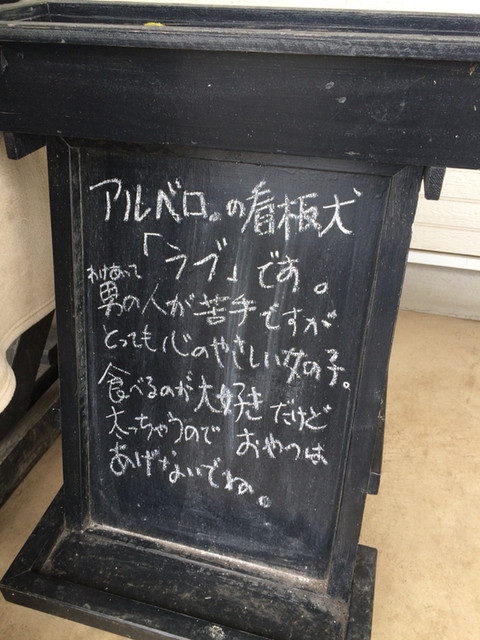 アルベロ。の看板犬
「ラブ」です。
わけあって
男の人が苦手ですが
とっても心のやさしい女の子。
食べるのが大好きだけど
太っちゃうので おやつは
あげないでね。